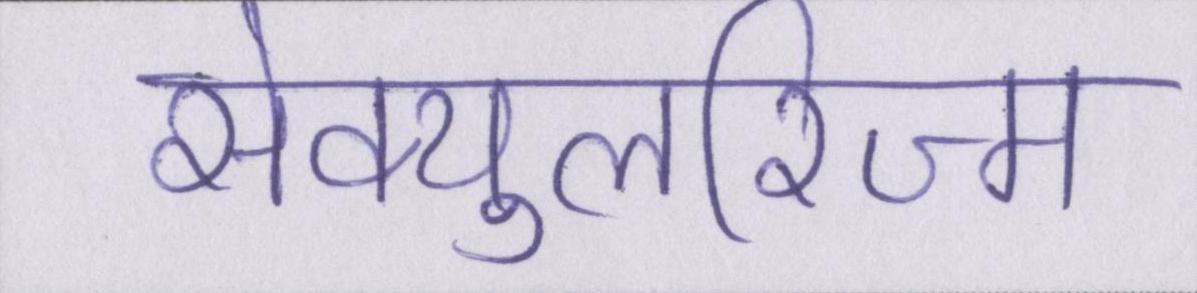 सेक्युलरिज्म